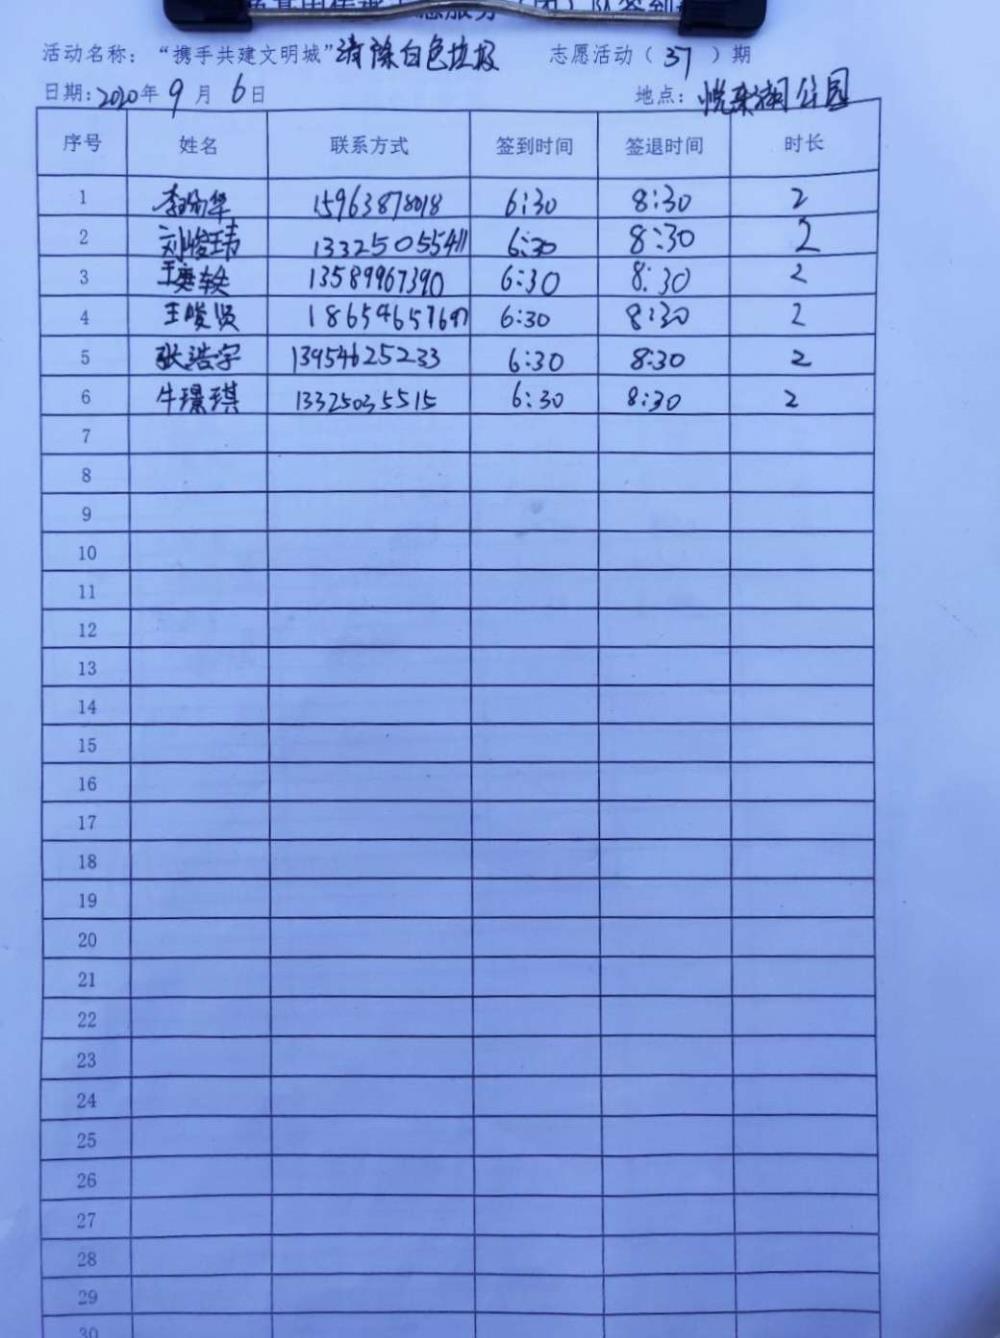 活动名称："携手共建文明城"清除白色垃圾 志愿活动（37）期
日期：2020年9月6日 地点：悦来湖公园
序号 姓名 联系方式 签到时间 签退时间 时长
1 15963878018 6:30 8:30 2
2 刘峻玮 13325055411 6:30 8:30 2
3 13589967390 6:30 8:30 2
4 王峻贤 6:30 8:30 2
5 张浩宇 13954625233 6:30 8:30 2
6 牛璟琪 13325035515 6:30 8:30 2
7
8
9
10
11
12
13
14
15
16
17
18
19
20
21
22
23
24
25
26
27
28
29
30